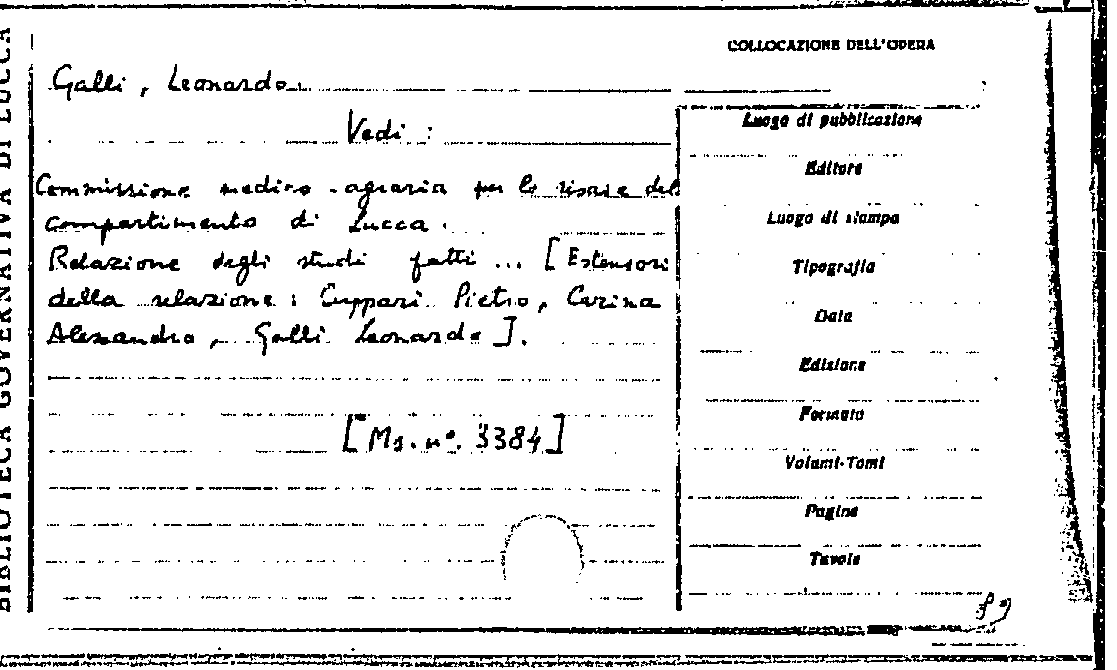 BIBLIOTECA GOVERNATIVA DI LUCCA
COLLOCAZIONE DELL'OPERA
Galli, Leonardo.
Vedi:
Commissione medico-agraria per le risaie del
compartimento di Lucca.
Relazione degli studi fatti ... [Estensori
della relazione: Cuppari Pietro, Carina
Alessandro, Galli Leonardo].
[Ms. n°. 3384]
Luogo di pubblicazione
Editore
Luogo di stampa
Tipografia
Data
Edizione
Formato
Volumi-Tomi
Pagine
Tavole